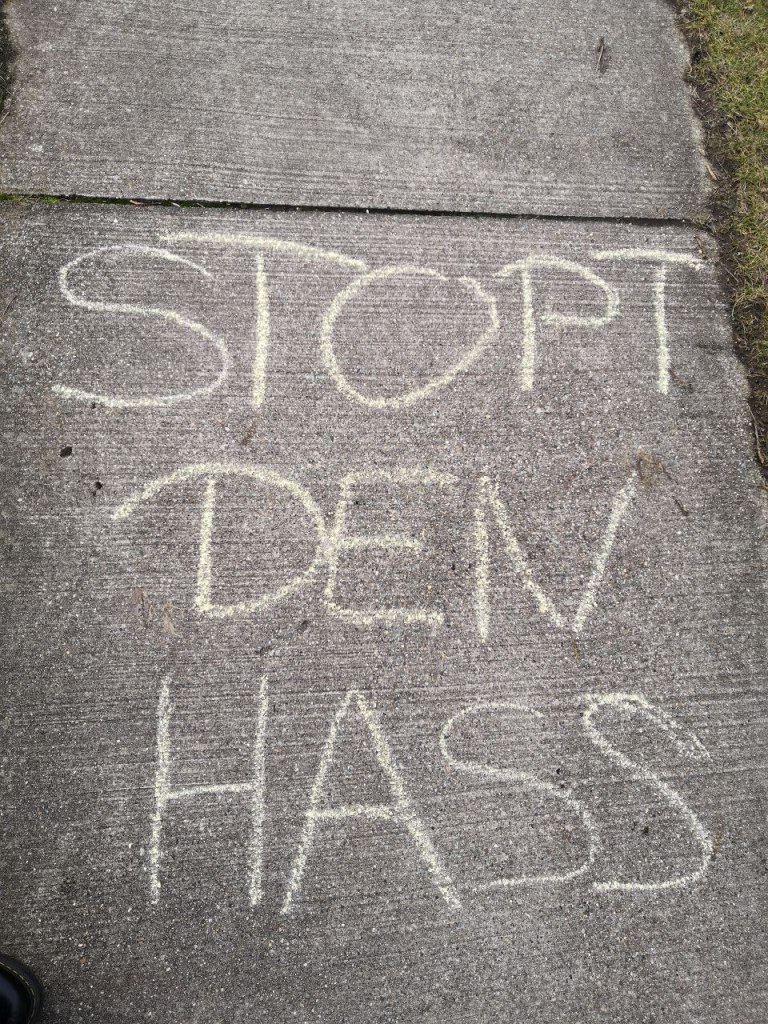 STOPT
DEN
HASS